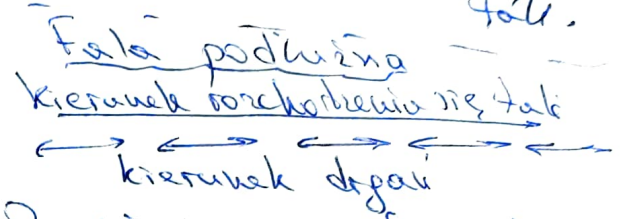 fali.
Fala podłużna
kierunek rozchodzenia się fali
kierunek drgań